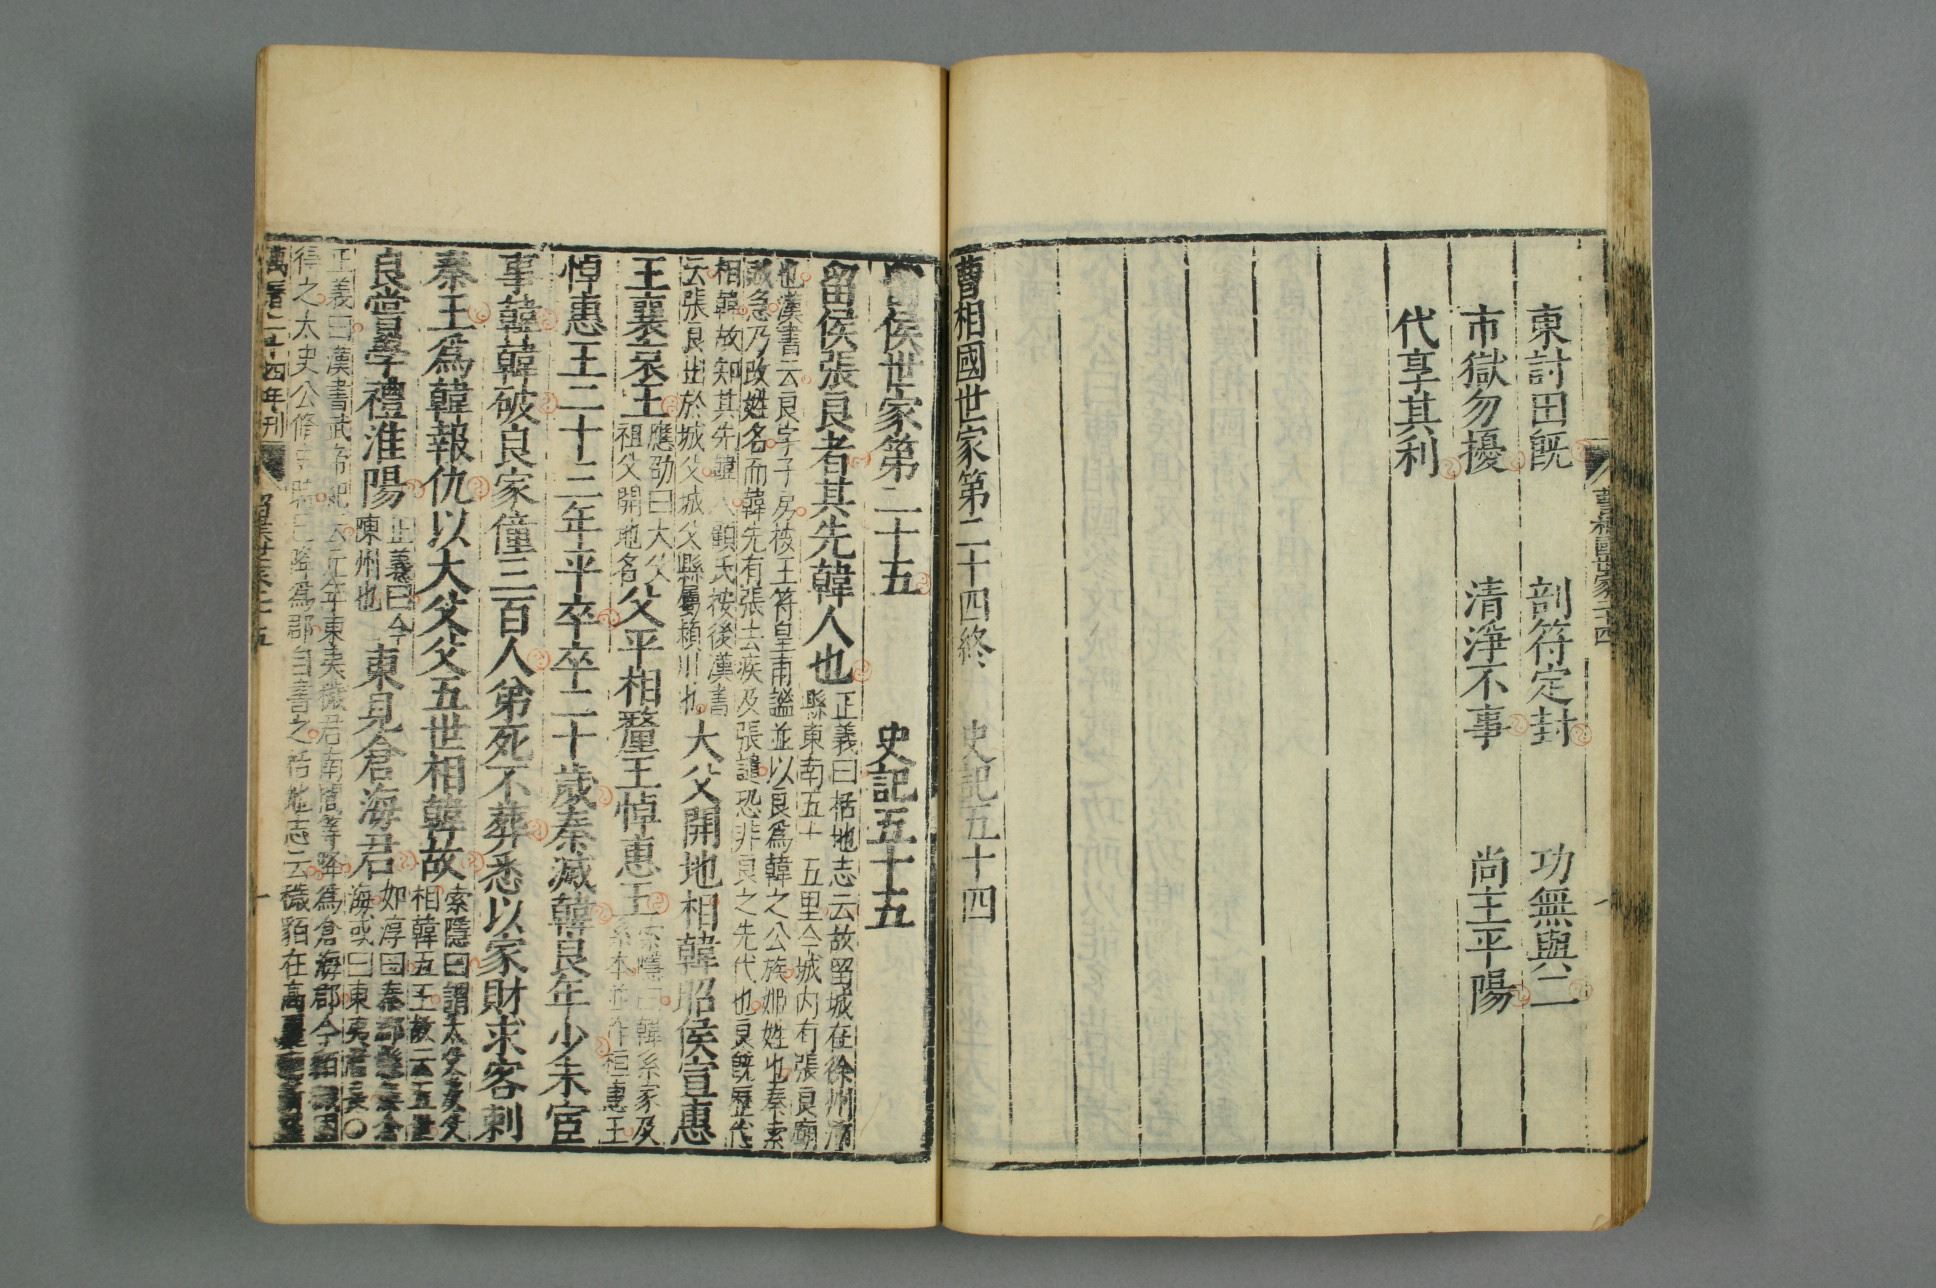 東討田旣　剖符定封　功無與二
市獄勿擾　清淨不事　尚主平陽
代享其利
曹相國世家第二十四終　史記五十四
曹相國世家二十四
留侯世家第二十五　史記五十五
留侯張良者其先韓人也
正義曰括地志云故留城在徐州沛
縣東南五十五里今城內有張良廟
也漢書云良字子房按王符皇甫謐並以良爲韓之公族姬姓也秦索
賊急乃改姓名而韓先有張去疾及張譴恐非良之先代也良旣歷代
相韓故知其先韓人顧氏按後漢書
云張良出於城父城父縣屬潁川也
大父開地相韓昭侯宣惠
王襄哀王
應劭曰大父
祖父開地名
父平相釐王悼惠王
索隱曰韓系家及
系本並作桓惠王
悼惠王二十三年平卒卒二十歲秦滅韓良年少未宦
事韓韓破良家僮三百人弟死不葬悉以家財求客刺
秦王爲韓報仇以大父父五世相韓故
索隱曰謂大父及父
相韓五王故云五世
良嘗學禮淮陽
正義曰今
陳州也
東見倉海君
如淳曰秦郡縣無倉
海或曰東夷君長〇
正義曰漢書武帝紀云元年東夷穢君南閭等降爲倉海郡今貊穢國
得之太史公脩史時已降爲郡自書之括地志云穢貊在高
萬曆二十四年刊
留侯世家二十五
一